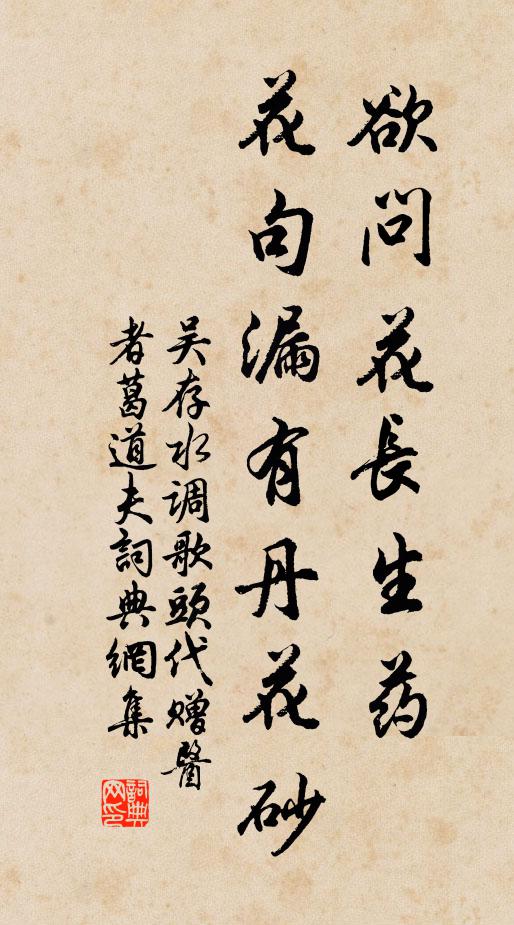 欲問花長生药
花句漏有丹花砂
吴存水调歌頭代赠醫
者葛道夫詞典網集
詞典网印